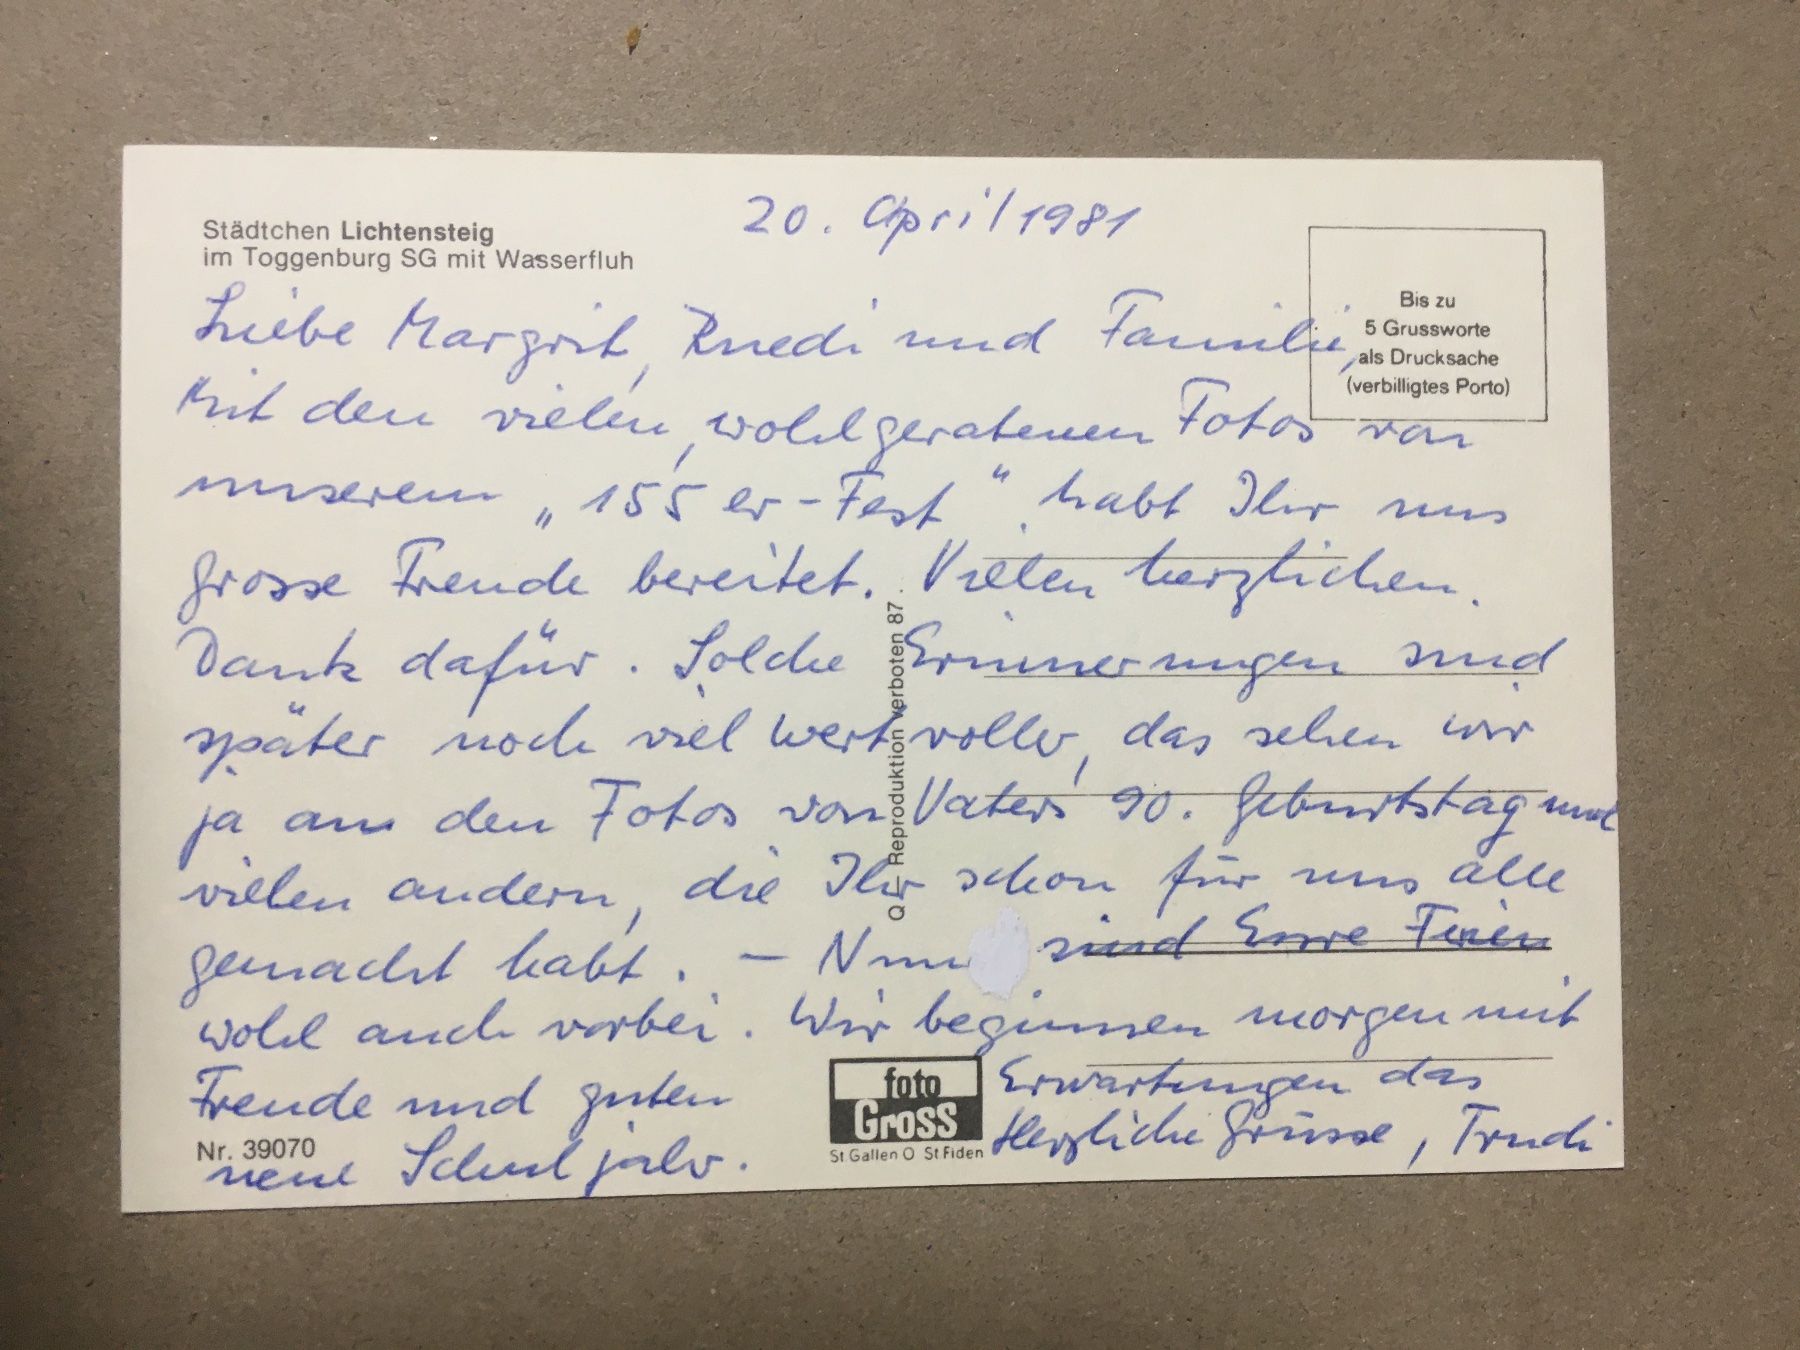 Städtchen Lichtensteig
im Toggenburg SG mit Wasserfluh
20. April 1981
Bis zu
5 Grussworte
als Drucksache
(verbilligtes Porto)
Liebe Margrit, Ruedi und Familie,
Mit den vielen, wohlgeratenen Fotos von
unserem „155 er-Fest" habt Ihr uns
grosse Freude bereitet. Vielen herzlichen
Dank dafür. Solche Erinnerungen sind
später noch viel wertvoller, das sehen wir
ja an den Fotos von Vaters 90. Geburtstag und
vielen andern, die Ihr schon für uns alle
gemacht habt. – Nun sind Eure Ferien
wohl auch vorbei. Wir beginnen morgen mit
Freude und guten Erwartungen das
neue Schuljahr. Herzliche Grüsse, Trudi
Reproduktion verboten 87
Nr. 39070
foto
Gross
St Gallen O St Fiden